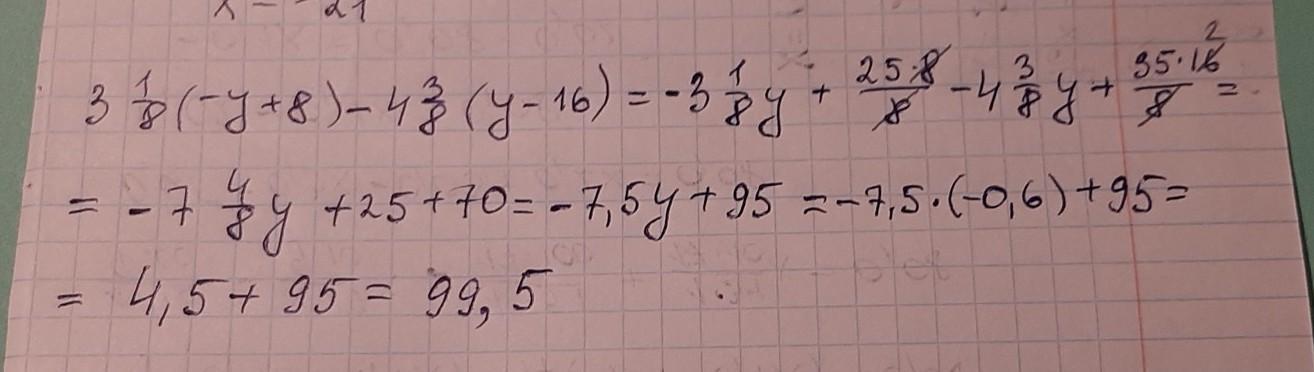 x = -21
3 1/8 (-y+8) - 4 3/8 (y-16) = -3 1/8 y + 25·8/8 - 4 3/8 y + 35·16/8 2 =
= -7 4/8 y + 25 + 70 = -7,5y + 95 = -7,5·(-0,6) + 95 =
= 4,5 + 95 = 99,5